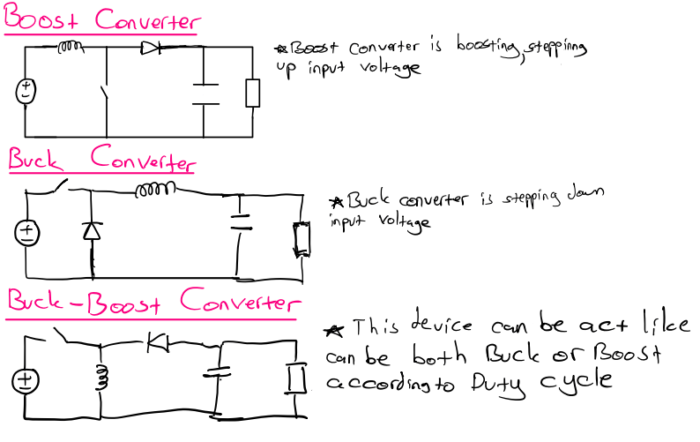 Boost Converter
*Boost converter is boosting, stepping
up input voltage
Buck Converter
*Buck converter is stepping down
input voltage
Buck-Boost Converter
* This device can be act like
can be both Buck or Boost
according to Duty cycle